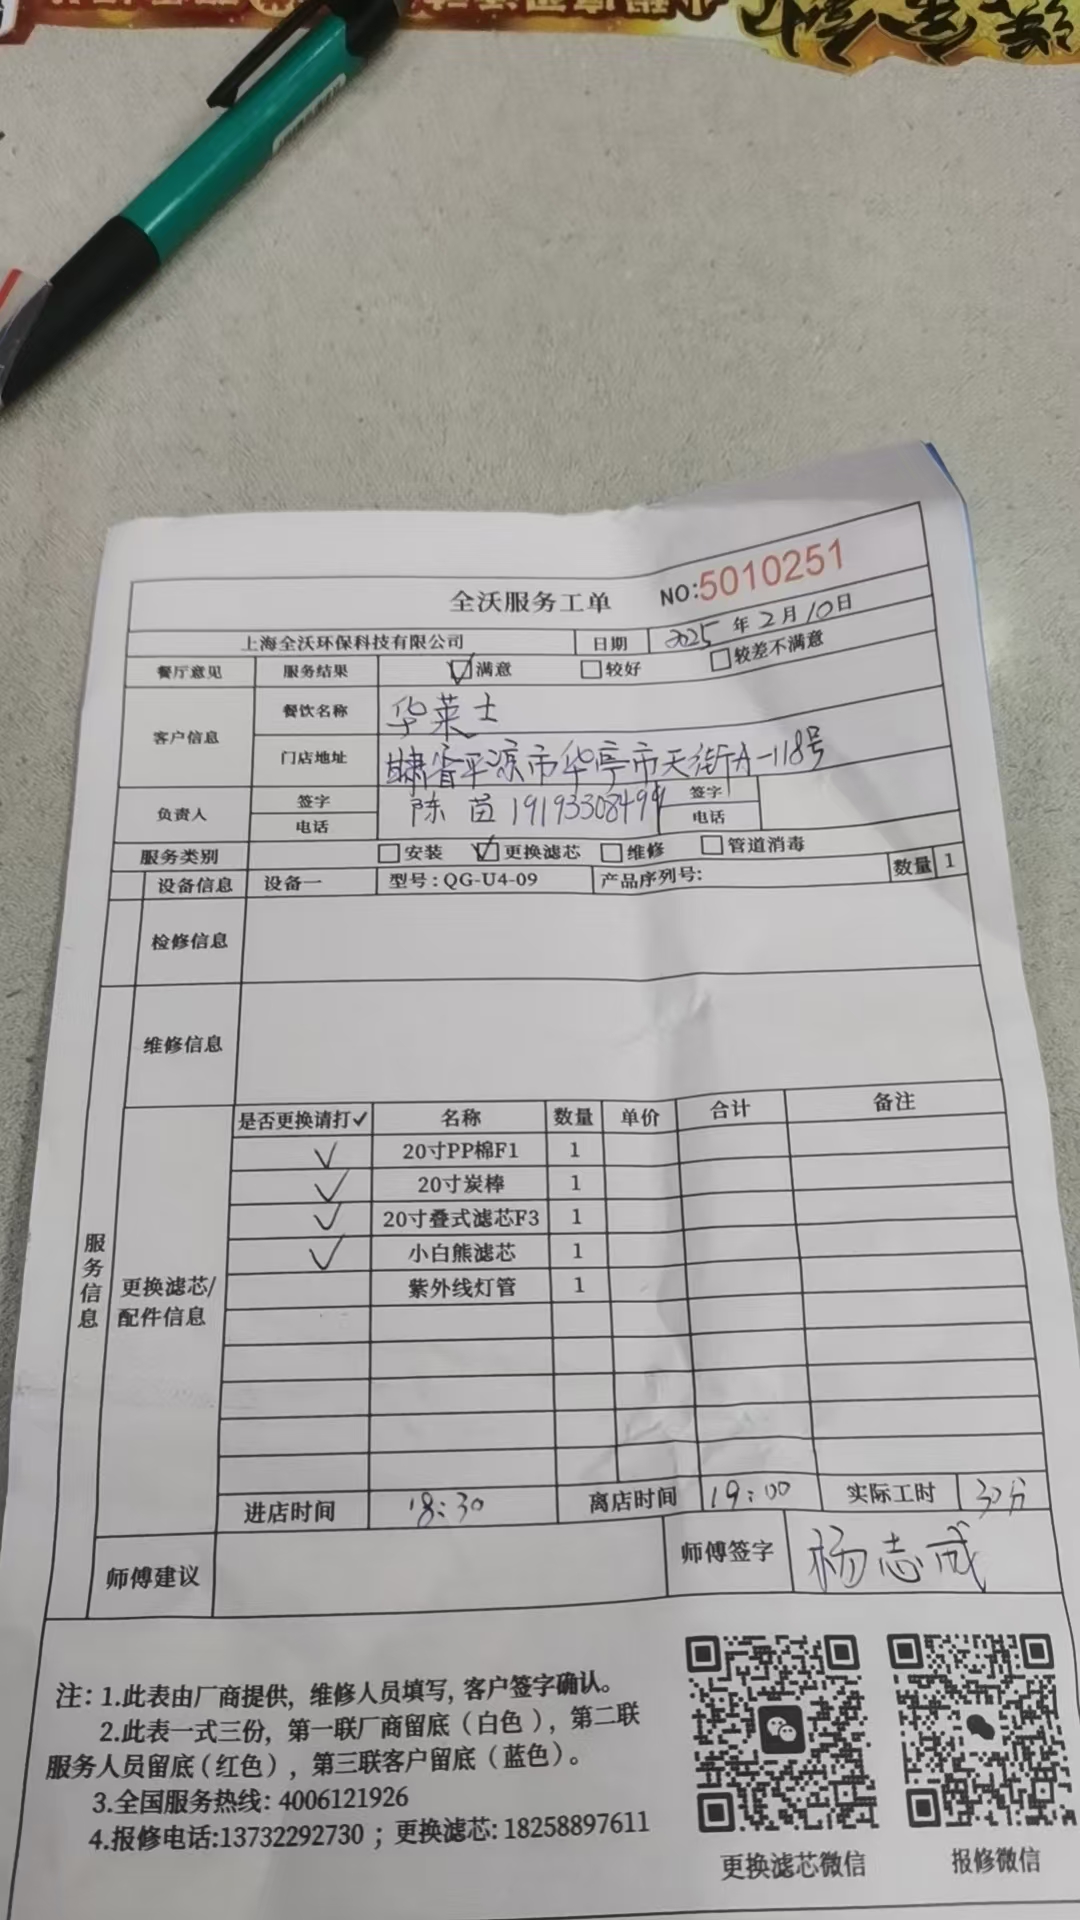 全沃服务工单
NO:5010251
上海全沃环保科技有限公司 日期 2025年2月10日
餐厅意见 服务结果 ☑满意 □较好 □较差不满意
客户信息 餐饮名称 华莱士
门店地址 肃省平凉市华亭市天街A-118号
负责人 签字 电话 陈苗 19193308499 签字 电话
服务类别 □安装 ☑更换滤芯 □维修 □管道消毒
设备信息 设备一 型号:QG-U4-09 产品序列号: 数量 1
检修信息
维修信息
服务信息
更换滤芯/配件信息
是否更换请打✓ 名称 数量 单价 合计 备注
✓ 20寸PP棉F1 1
✓ 20寸炭棒 1
✓ 20寸叠式滤芯F3 1
✓ 小白熊滤芯 1
紫外线灯管 1
进店时间 18:30 离店时间 19:00 实际工时 30分
师傅建议 师傅签字 杨志成
注:1.此表由厂商提供,维修人员填写,客户签字确认。
2.此表一式三份,第一联厂商留底(白色),第二联
服务人员留底(红色),第三联客户留底(蓝色)。
3.全国服务热线:4006121926
4.报修电话:13732292730;更换滤芯:18258897611
更换滤芯微信 报修微信